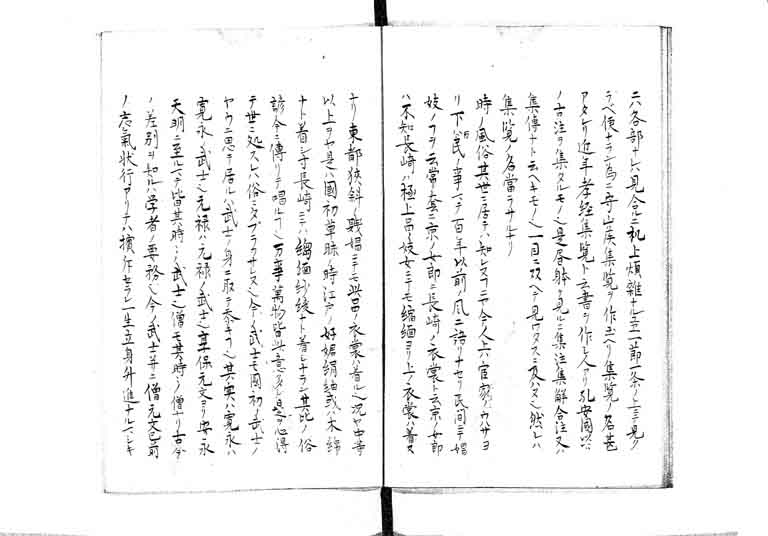 ニハ各部ナトハ見合ニ机上煩雑ナル
ラベ使ナラン為ニ集覧ヲ作玉ヘリ集覧ノ名甚
アタレリ近年孝経集覧ト云書ヲ作レ人アリ孔安國以下
ノ古注ヲ集タルモノ也是昏躰ヲ見ルニ集注集解合注又ハ
集傳ナト云ヘキモノ也一目ニ攷ヘテ見ワタスニ及ハス也然レハ
集覧ノ名當ラサルナリ
時ノ風俗其世ニ居テハ知レヌコニテ今人上ハ官家ノウハサヨ
リ下ハ民ノ事マテ百年以前ノ風ニ語リナセリ民間ニテ娼
妓ノコヲ云常套ニ京ノ女郎ニ長崎ノ衣裳ト云京ノ女郎
ハ不知長崎ハ極上品ノ妓女ニテモ縮緬ヨリ上ノ衣裳ハ着ス
ナリ東都狭斜ノ賤娼ニテモ此品ノ衣裳ハ着ル也況ヤ中等
以上ヲヤ是ハ國初草昧ノ時江戸ノ好娼絹紬或ハ木綿
ナト着シ時長崎ニテハ縮緬紗綾ナト着シナラン其比ノ俗
諺今ニ傳リテ唱ルノミ也万事萬物皆此意多シ是ヲ心得
テ世ニ処スレハ俗ニタブラカサレヌ也今ノ武士モ國初ノ武士ノ
ヤウニ思テ居ル也武士ノ身ニ取テ忝キコ也其実ハ寛永ハ
寛永ノ武士也元禄ハ元禄ノ武士也享保元文ヨリ安永
天明ニ至ルマテ皆其時々ノ武士也僧モ其時々ノ僧ナリ古今
ノ差別ヲ知ルハ学者ノ要務也今ノ武士并ニ僧元文已前
ノ志氣状行アリナハ擯斥セラレ一生立身升進ナルマシキ